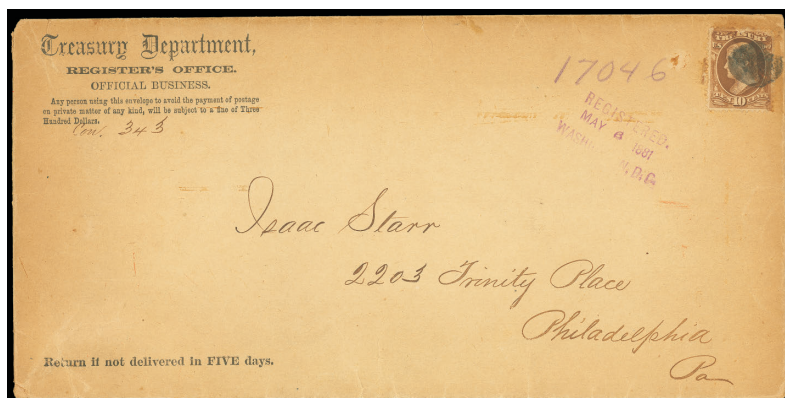 Treasury Department,
REGISTER'S OFFICE.
OFFICIAL BUSINESS.
Any person using this envelope to avoid the payment of postage
on private matter of any kind, will be subject to a fine of Three
Hundred Dollars.
Con. 343
17046
REGISTERED.
MAY 6 1881
D.C.
TREASURY
10
Isaac Starr
2203 Trinity Place
Philadelphia
Pa
Return if not delivered in FIVE days.